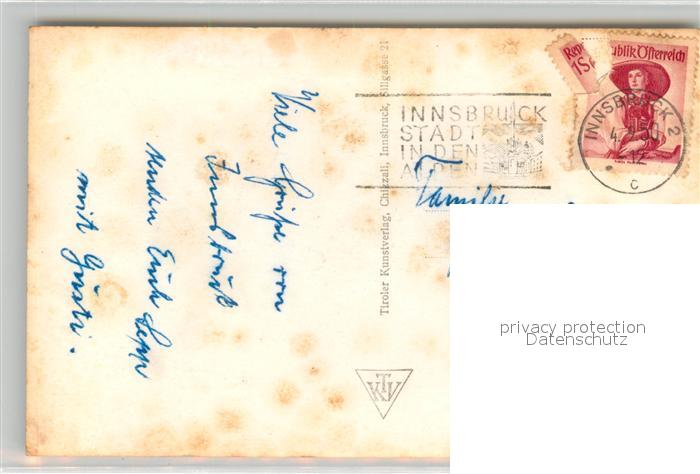 Viele Grüße von
Innsbruck
senden Euch Sepp
mit Gusti.
Tiroler Kunstverlag, Chizzali, Innsbruck, Sillgasse 21
INNSBRUCK
STADT
IN DEN
ALPEN
Republik Österreich
1S
INNSBRUCK 2
50
12
c
Familie
KTV
privacy protection
Datenschutz